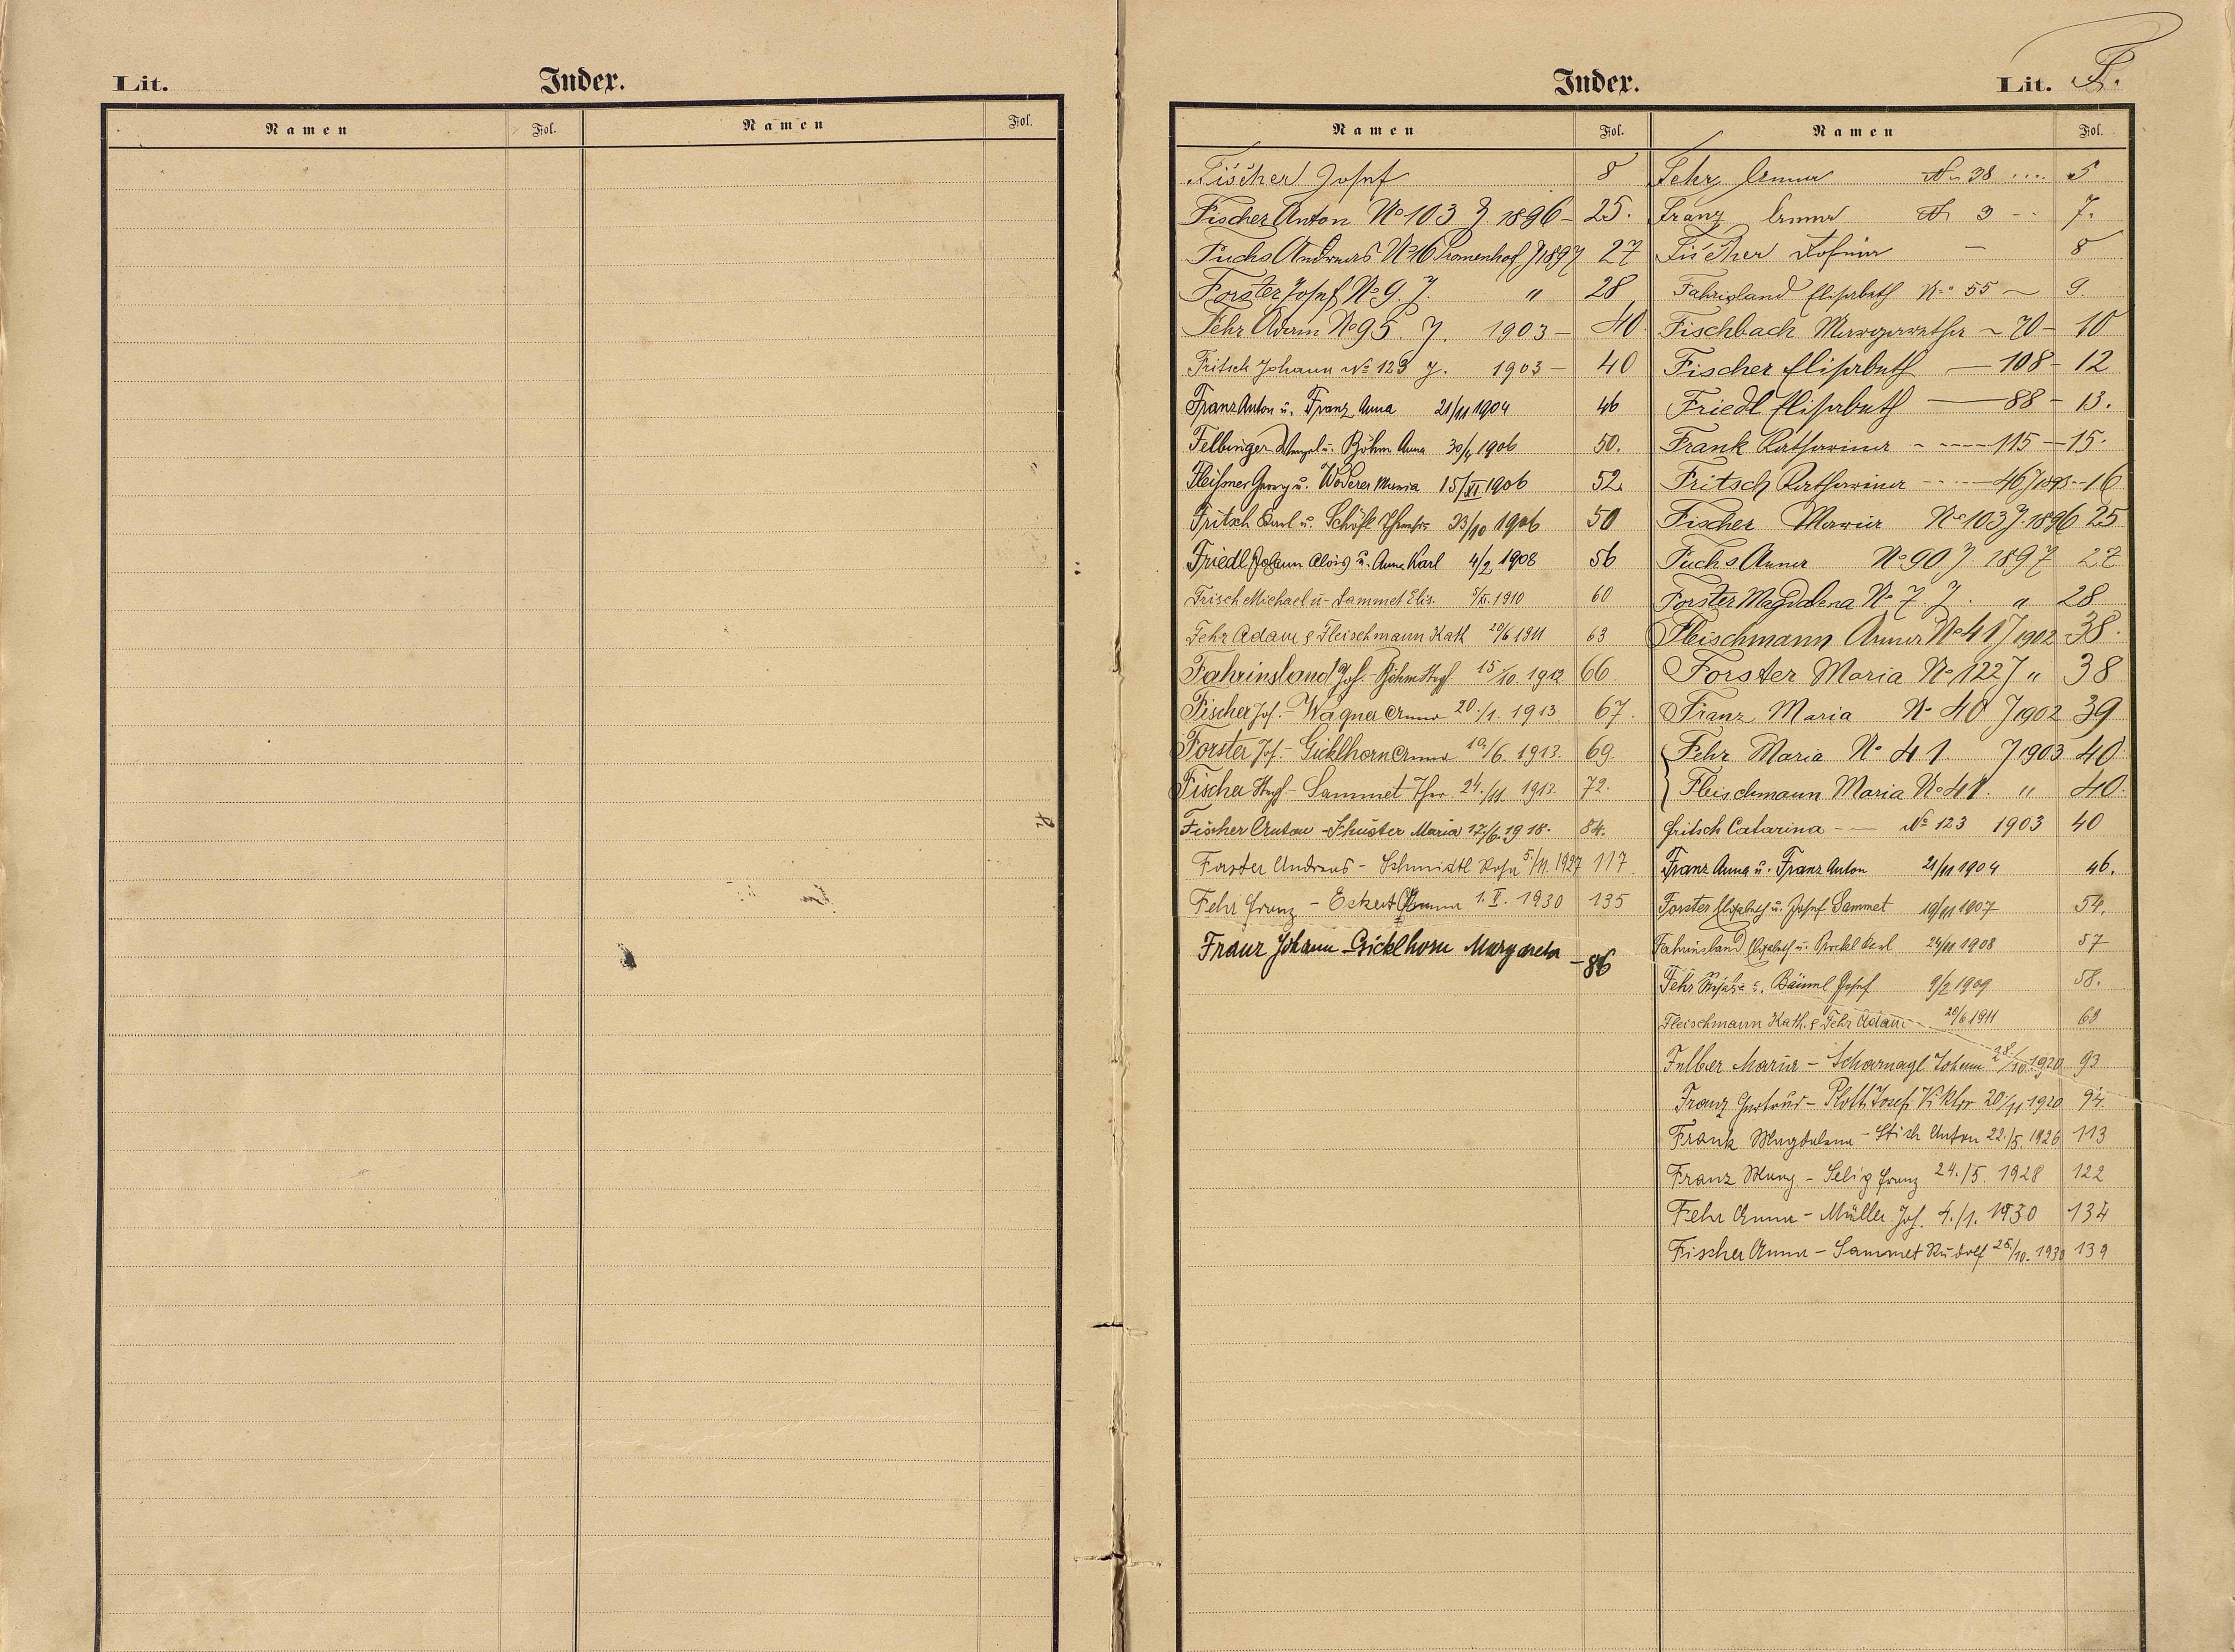 Lit.
Index.
Namen Fol. Namen Fol.
Index.
Lit. F.
Namen Fol. Namen Fol.
Fischer Josef 8
Fischer Anton No 103 J 1896 - 25.
Fuchs Andreas No 16 Promenhof J 1897 27
Forster Josef No 9. J. " 28
Fehr Adam No 95. J. 1903 - 40
Fritsch Johann No 123 J. 1903 - 40
Franz Anton u. Franz Anna 21/11 1904 46
Felbinger Wenzel u. Böhm Anna 30/4 1906 50.
Fleißner Georg u. Woderer Maria 15/XI 1906 52.
Fritsch Karl u. Schöfl 23/10 1906 50
Friedl Johann Alois u. Anna Karl 4/2 1908 56
Frisch Michael u. Sammet Elis. 1910 60
Fehr Adam & Fleischmann Kath 20/6 1911 63
Fahrinsland Jos. - Böhm 15/10. 1912 66
Fischer Jos. - Wagner Anna 20./1. 1913 67.
Forster Jos. - Gicklhorn Anna 10./6. 1913. 69.
Fischer - Sammet Ther. 24./11. 1913. 72.
Fischer Anton - Schuster Maria 17/6. 1918. 84.
Forster Andreas - Schmidtl Rosa 5/11. 1927 117.
Fehr Franz - Eckert Anna 1. V. 1930 135
Franz Johann - Gicklhorn Margareta - 86
Fehr Anna No 38 .... 5
Franz Anna No 3 - - 7.
Fischer - 8
Fahrisland Elisabeth No 55 - 9.
Fischbach Margaretha - 70 - 10
Fischer Elisabeth - 108 - 12
Friedl Elisabeth - 88 - 13.
Frank Katharina - - - - 115 - 15.
Fritsch Katharina - - - - 46 J 1895 - 16
Fischer Maria No 103 J. 1896 25
Fuchs Anna No 90 J 1897 27
Forster Magdalena No 7 J. " 28
Fleischmann Anna No 41 J 1902 38.
Forster Maria No 122 J " 38
Franz Maria No 40 J 1902 39
Fehr Maria No 41. J 1903 40
Fleischmann Maria No 41. " 40.
Fritsch Catarina - - No 123 1903 40
Franz Anna u. Franz Anton 21/11 1904 46.
Forster Elisabeth u. Josef Sammet 19/11 1907 54.
Fahrinsland Elisabeth u. Karl 24/11 1908 57
Fehr u. Bäuml Josef 9/2 1909 58.
Fleischmann Kath. & Fehr Adam 20/6 1911 63
Felber Maria - Scharnagl Johann 28./10. 1920 93
Franz Gertrud - Plott Josef Viktor 20/11 1920 94.
Frank Magdalena - Stich Anton 22./5. 1926 113
Franz Marg. - Selig Franz 24./5. 1928 122
Fehr Anna - Müller Jos. 4./1. 1930 134
Fischer Anna - Sammet Rudolf 26./10. 1930 139